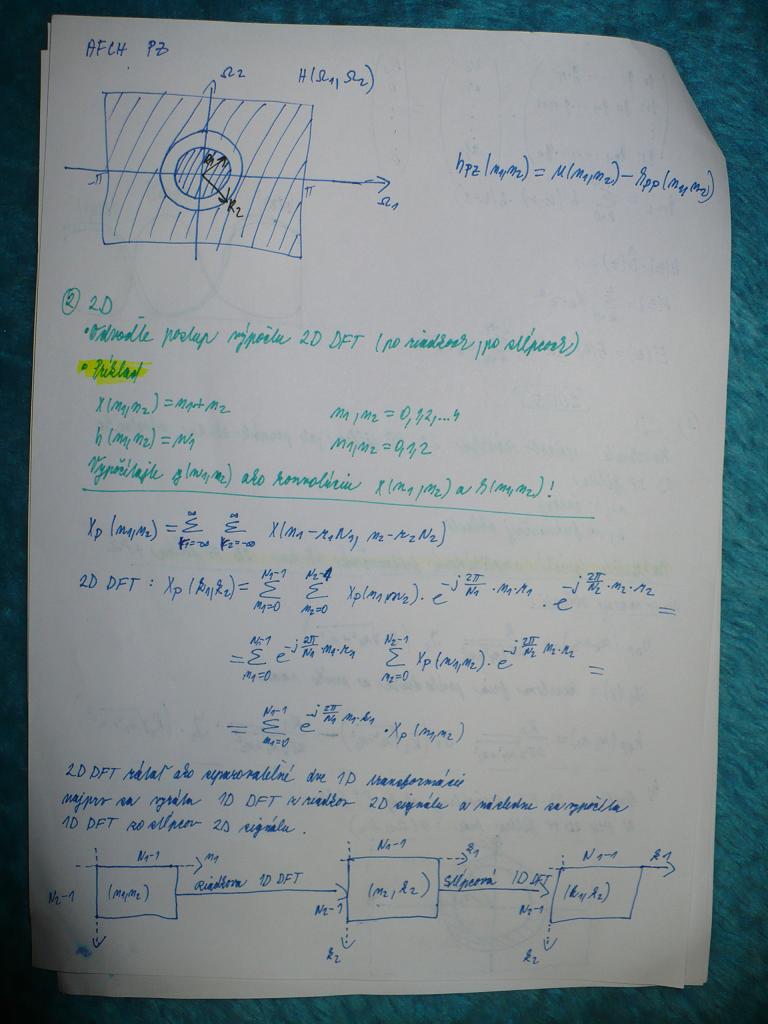 AFCH PZ
Ω2 H(Ω1,Ω2)
R1
π π
R2
Ω1
hPZ(n1,n2) = u(n1,n2) - hPP(n1,n2)
② 2D
• Odvoďte postup výpočtu 2D DFT (po riadkoch, po stĺpcoch)
• Príklad
x(n1,n2) = n1+n2 n1,n2 = 0,1,2,...4
h(n1,n2) = n1 n1,n2 = 0,1,2
Vypočítajte y(n1,n2) ako konvolúciu x(n1,n2) a h(n1,n2)!
Xp(n1,n2) = ∑_{r1=-∞}^{∞} ∑_{r2=-∞}^{∞} X(n1-r1N1, n2-r2N2)
2D DFT : Xp(k1,k2) = ∑_{n1=0}^{N1-1} ∑_{n2=0}^{N2-1} Xp(n1,n2) · e^{-j 2π/N1 · n1·k1} · e^{-j 2π/N2 · n2·k2} =
= ∑_{n1=0}^{N1-1} e^{-j 2π/N1 · n1·k1} ∑_{n2=0}^{N2-1} Xp(n1,n2) · e^{-j 2π/N2 · n2·k2} =
= ∑_{n1=0}^{N1-1} e^{-j 2π/N1 n1·k1} · Xp(n1,n2)
2D DFT rátať ako separovateľné dve 1D transformácie
najprv sa vyráta 1D DFT z riadkov 2D signálu a následne sa vypočíta
1D DFT zo stĺpcov 2D signálu.
N1-1 n1 N1-1 k1 N1-1 k1
N2-1 (n1,n2) Riadková 1D DFT N2-1 (n2,k2) Stĺpcová 1D DFT N2-1 (k1,k2)
k2 k2